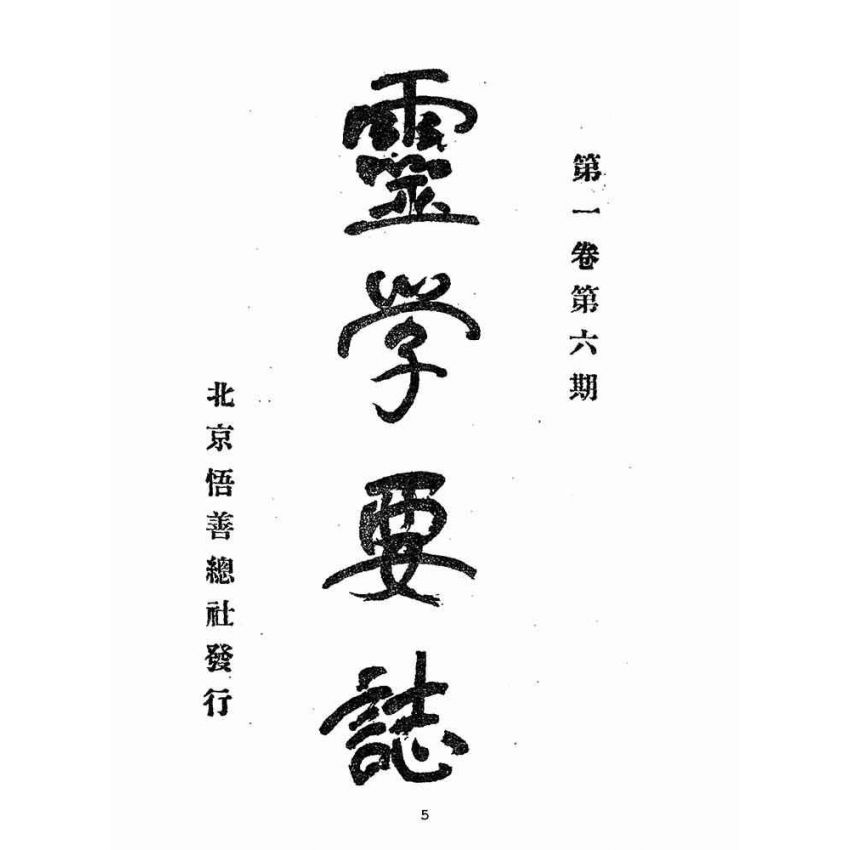 第一卷第六期
靈学要誌
北京悟善總社發行
5